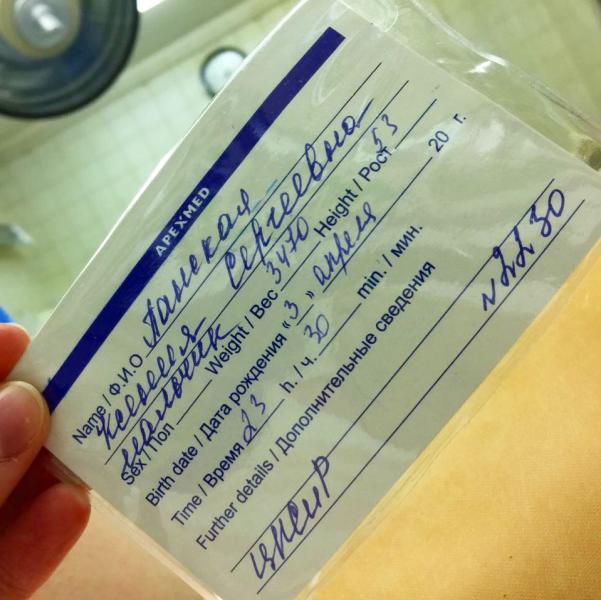 APEXMED
Name / Ф.И.О Панская
Ксения Сергеевна
мальчик
Sex / Пол Weight / Вес 3470 Height / Рост 53
Birth date / Дата рождения «3» апреля 20 г.
Time / Время 23 h. / ч. 30 min. / мин.
Further details / Дополнительные сведения
№2230
ЦПСиР